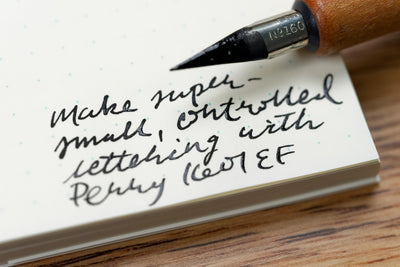 No160
Make super-
small, controlled
lettering with
Perry 1601 EF